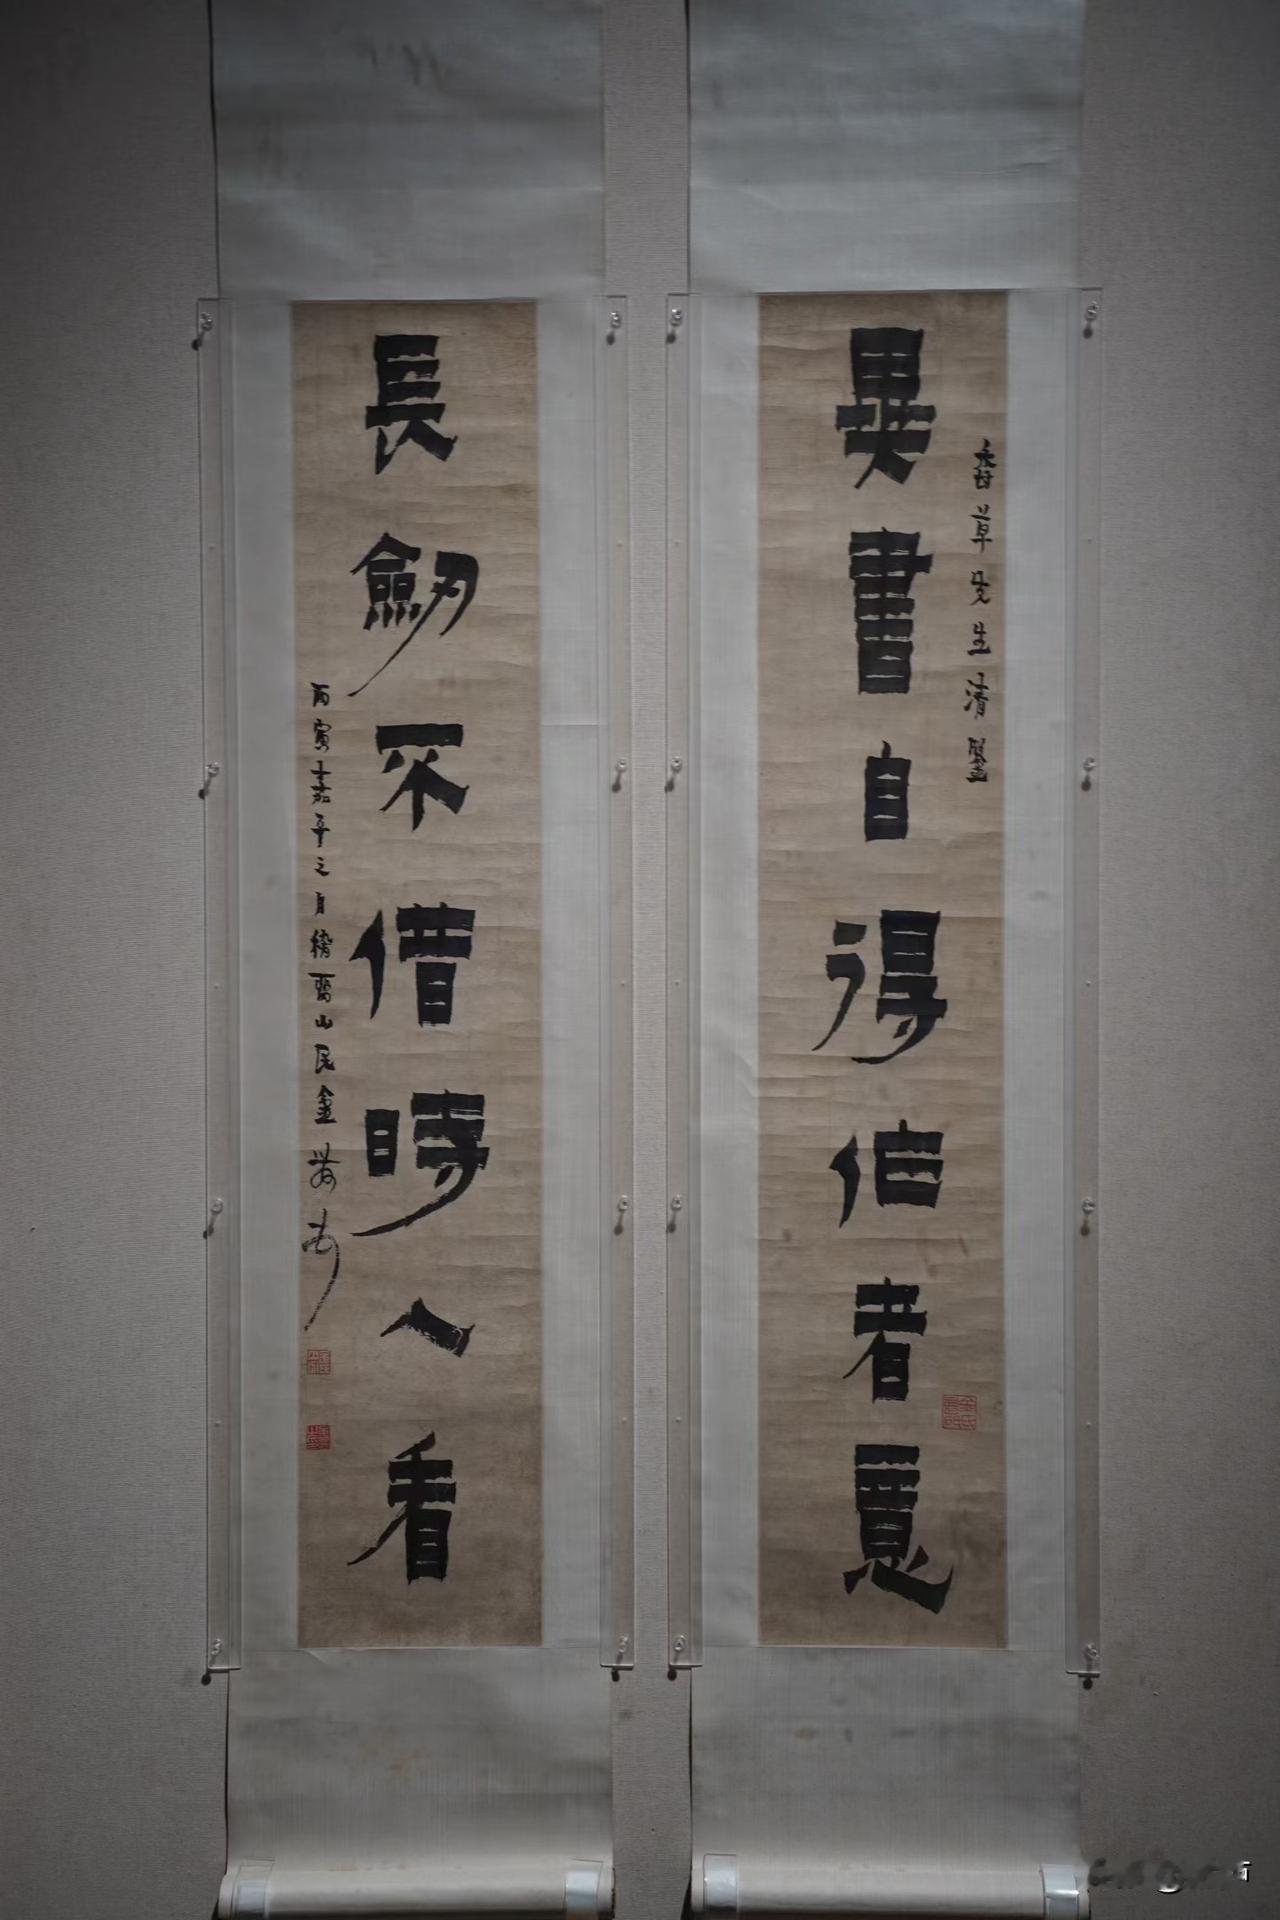 香草先生清鑒
異書自得作者意
長劒不借時人看
丙寅嘉平之月山民金